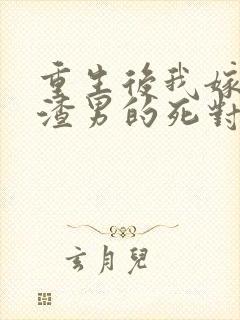 重生後我嫁
渣男的死對
玄月兒